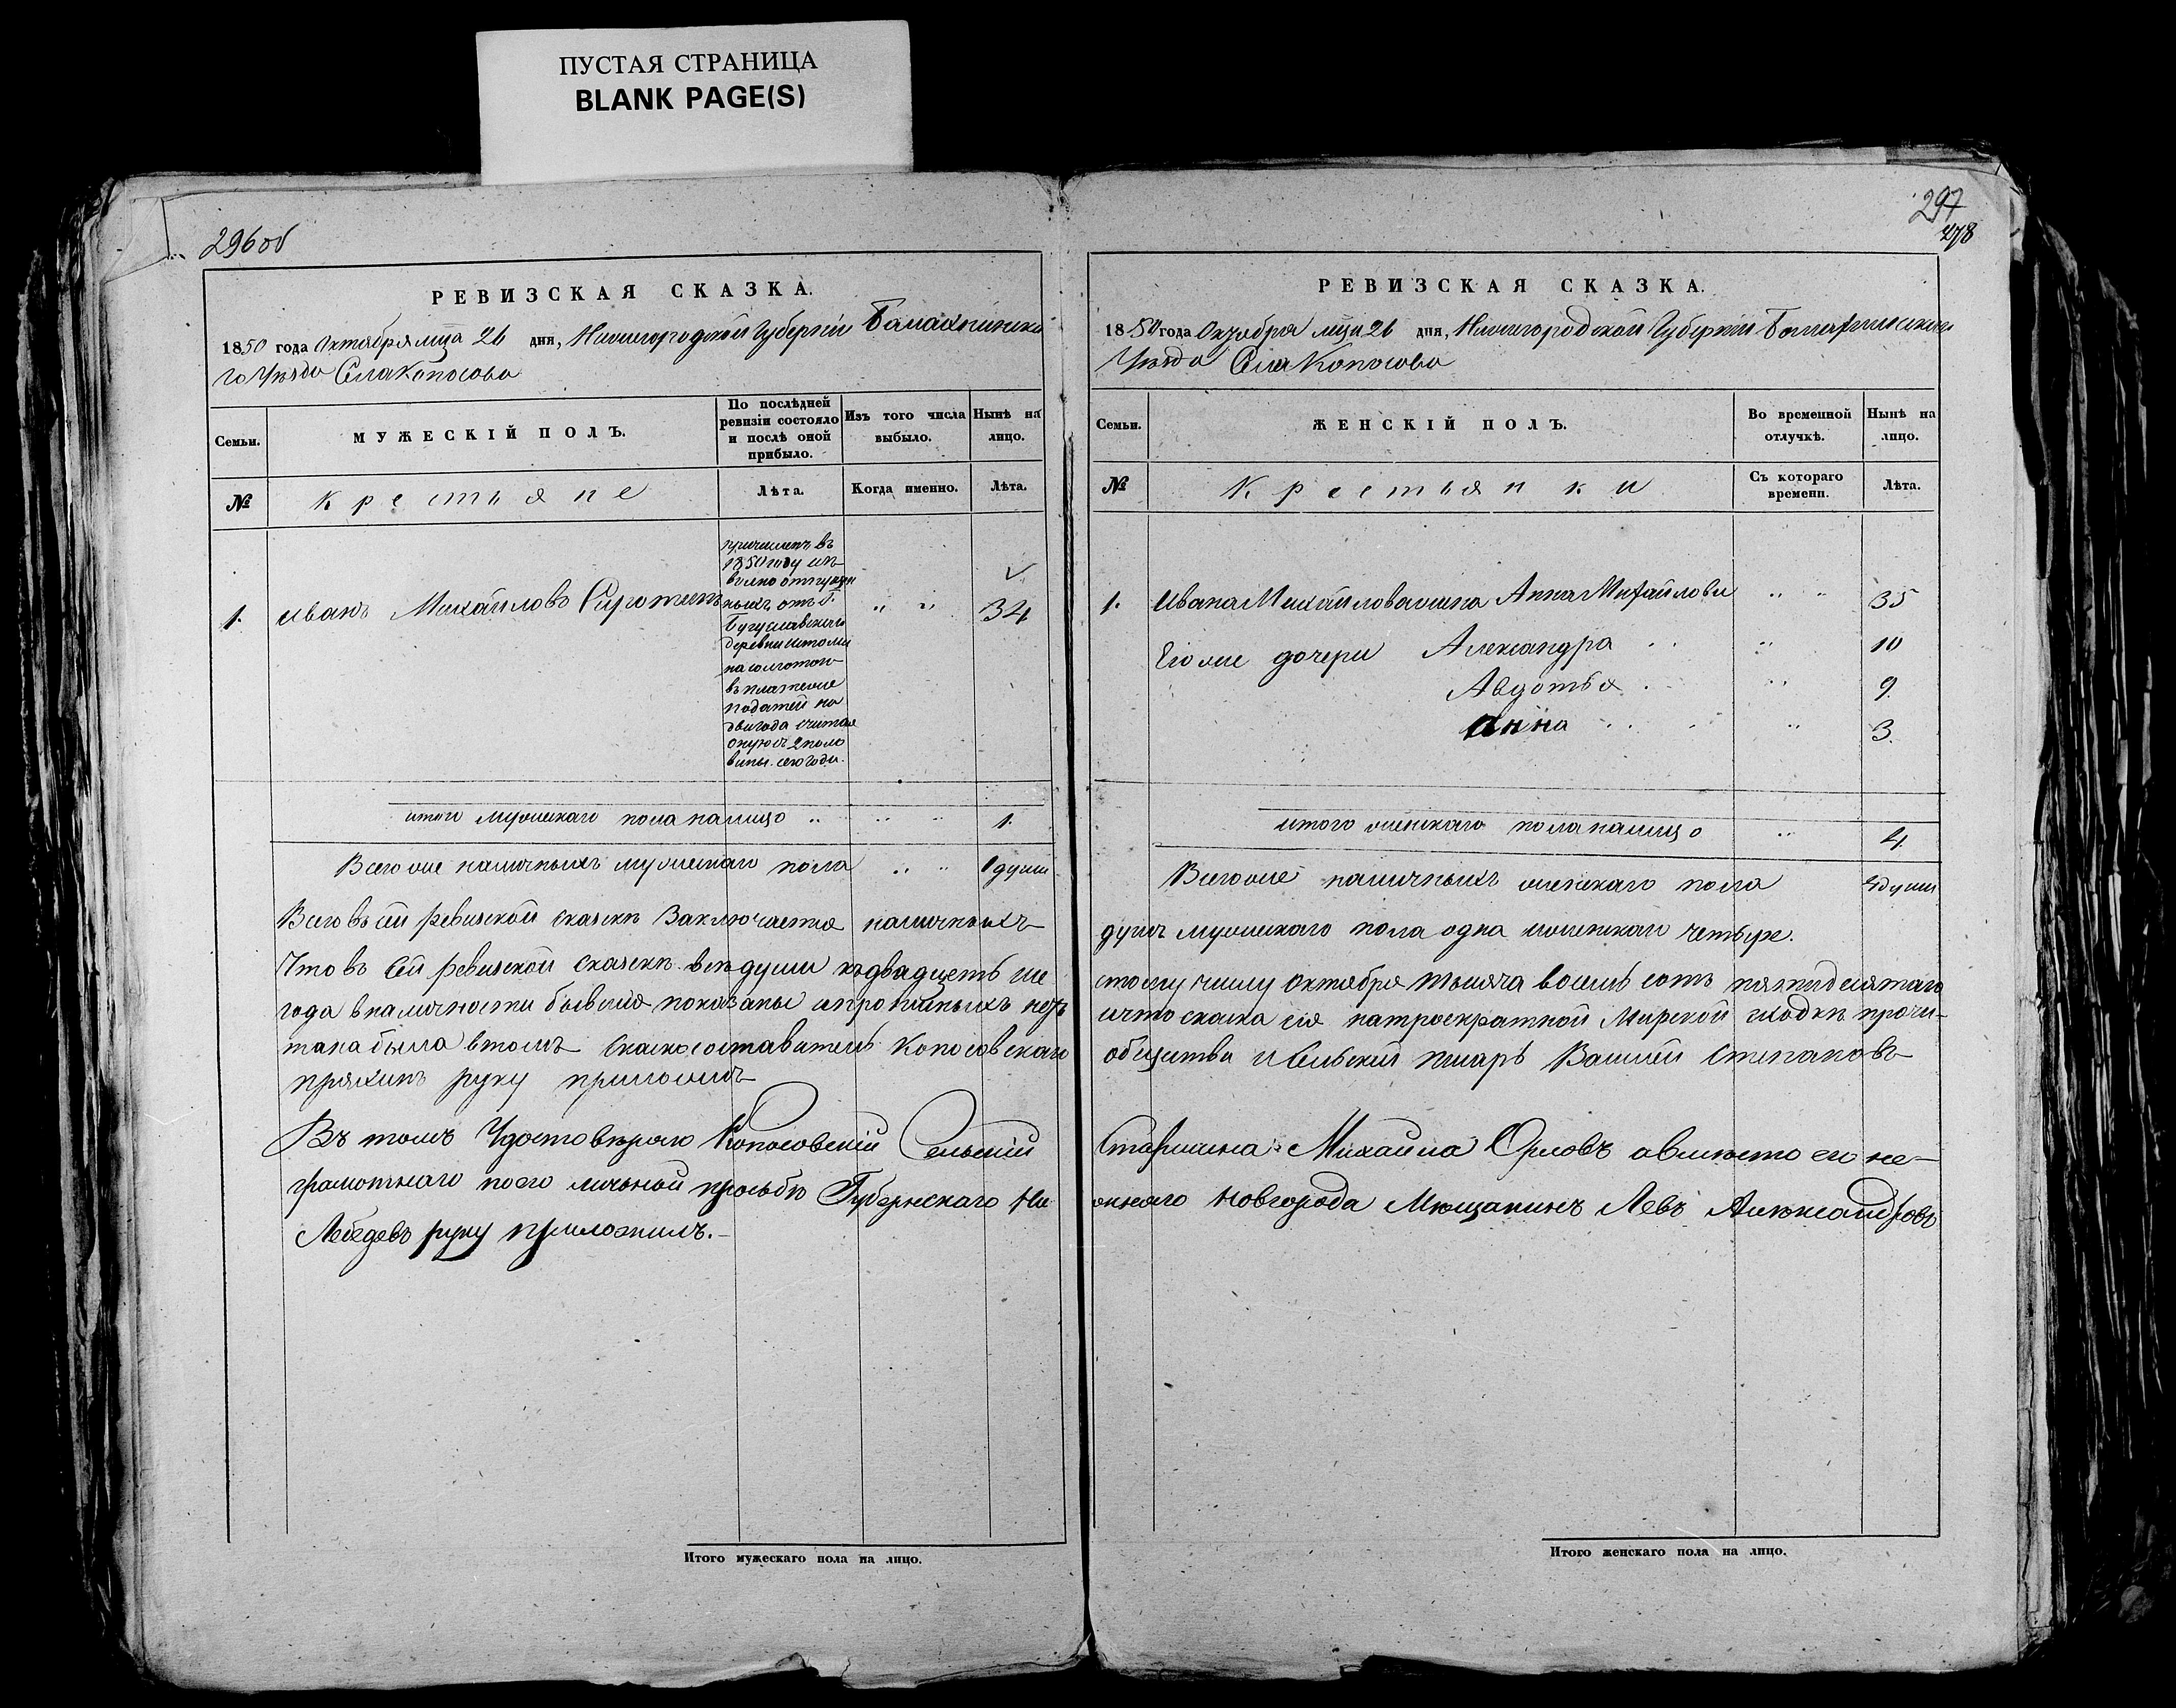 ПУСТАЯ СТРАНИЦА
BLANK PAGE(S)
296об
РЕВИЗСКАЯ СКАЗКА.
1850 года Октября мца 26 дня, Нижегородской Губерніи Балахнинска
го Уѣзда Села Копосова
Семьи.
МУЖЕСКІЙ ПОЛЪ.
По послѣдней ревизіи состояло и послѣ оной прибыло.
Изъ того числа выбыло.
Нынѣ на лицо.
№
Крестьяне
Лѣта.
Когда именно.
Лѣта.
1.
Иванъ Михайловъ
причисленъ въ
1850 году изъ
вольно отпущен
ныхъ отъ Г.
деревни
въ платеже
податей на
два года считая
оную съ 2 поло
вины сего года.
" "
34
итого мужескаго пола налицо " " " 1.
Всего же наличныхъ мужескаго пола " " 1 души
Всего въ сей ревизской сказкѣ заключается наличныхъ
Что въ сей ревизской сказкѣ всѣ души къ двадцеть ше
года в наличности бывшія показаны и прописныхъ нетъ
тана была в томъ сказкосоставитель Копосовскаго
руку приложилъ
Въ томъ Удостовѣряю Копосовскій Сельскій
грамотнаго по его личной прозьбѣ Губернскаго Ни
Лебедевъ руку приложилъ.
Итого мужескаго пола на лицо.
297
278
РЕВИЗСКАЯ СКАЗКА.
1850 года Октября мца 26 дня, Нижегородской Губерніи Балахнинскаго
Уѣзда Села Копосова
Семьи.
ЖЕНСКІЙ ПОЛЪ.
Во временной отлучкѣ.
Нынѣ на лицо.
№
Крестьянки
Съ котораго времени.
Лѣта.
1. Ивана Михайлова жена Анна Михайлова " " 35
Его же дочери Александра " 10
Авдотья " 9.
Анна " 3.
итого женскаго пола налицо " 4
Всего же наличныхъ женскаго пола 4 души
душъ мужескаго пола одна женскаго четыре.
стому числу октября тысяча восемь сотъ пятидесятаго
и что сказка сія на троекратной Мирской сходкѣ прочи-
общества и Сельскій писарь Василей Степановъ
Старшина Михайла Орловъ а вместо его не-
жняго Новгорода Мещанинъ Левъ Александровъ
Итого женскаго пола на лицо.